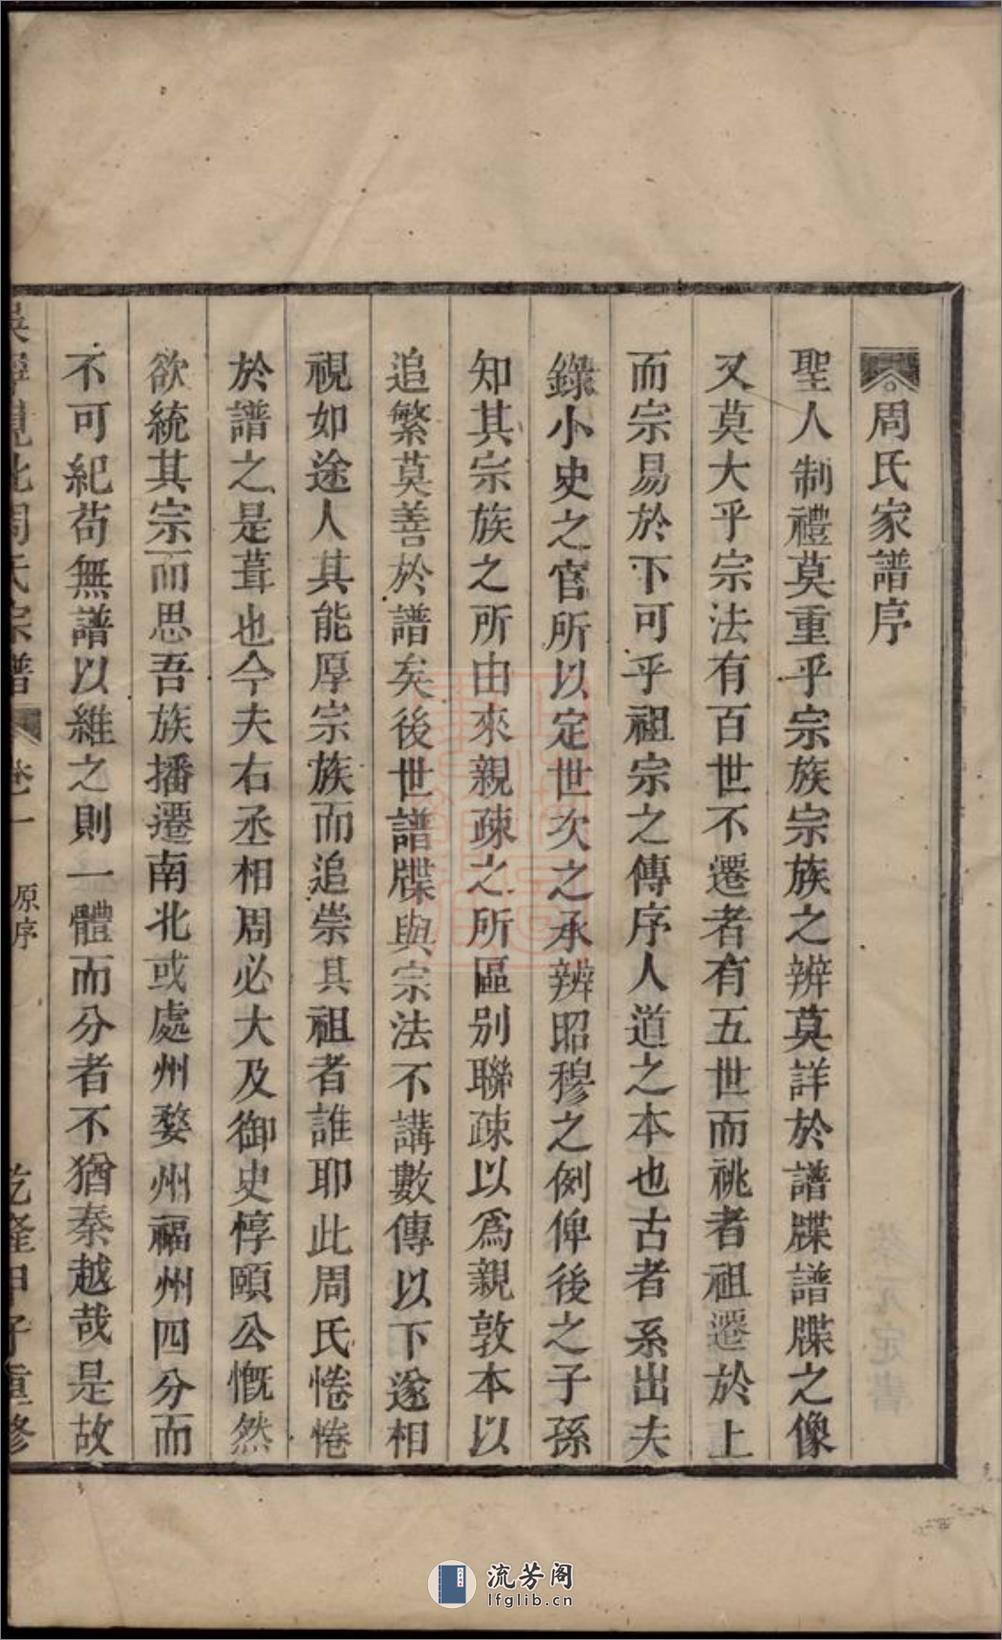 周氏家譜序
聖人制禮莫重乎宗族宗族之辨莫詳於譜牒譜牒之像
又莫大乎宗法有百世不遷者有五世而祧者祖遷於上
而宗易於下可乎祖宗之傳序人道之本也古者系出夫
錄小史之官所以定世次之承辨昭穆之例俾後之子孫
知其宗族之所由來親疎之所區別聯疎以爲親敦本以
追繁莫善於譜矣後世譜牒與宗法不講數傳以下遂相
視如途人其能厚宗族而追崇其祖者誰耶此周氏惓惓
於譜之是葺也今夫右丞相周必大及御史惇頤公慨然
欲統其宗而思吾族播遷南北或處州婺州福州四分而
不可紀苟無譜以維之則一體而分者不猶秦越哉是故
周氏宗譜 卷一 原序 乾隆甲子重修
流芳阁
lfglib.cn